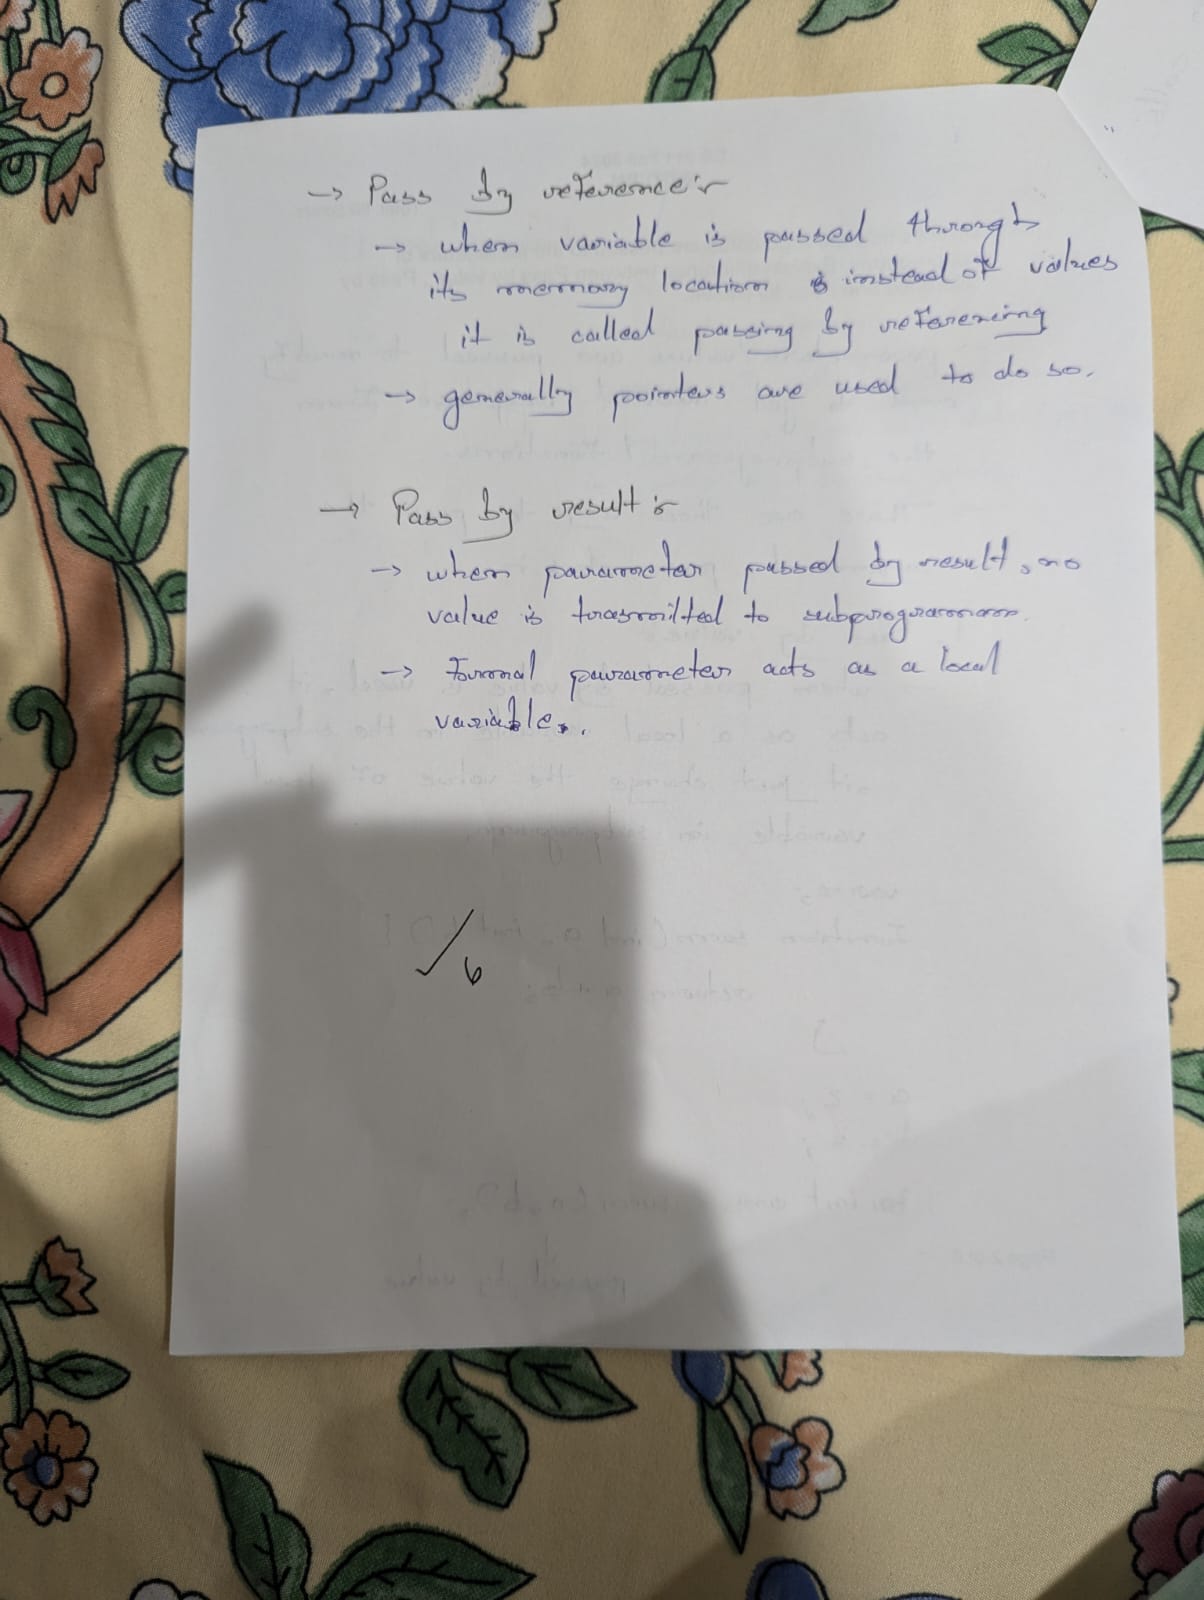 → Pass by reference :-
→ when variable is passed through
its memory location instead of values
it is called passing by referencing
→ generally pointers are used to do so.
→ Pass by result :-
→ when parameter passed by result, no
value is trasmitted to subprogramm.
→ Formal parameter acts as a local
variable.
6